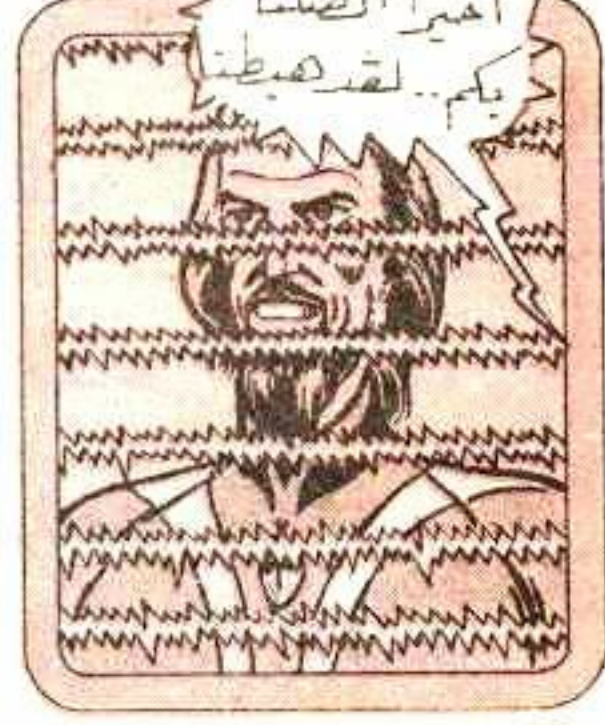 أخيرا اتصلنا
بكم.. لقد هبطنا